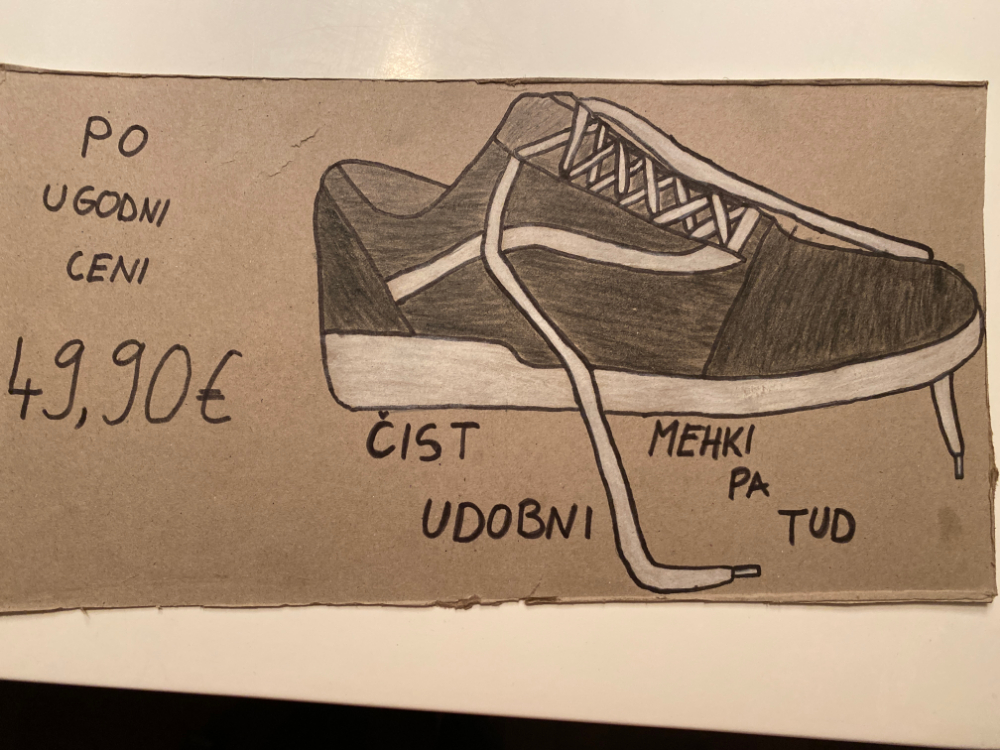 PO
UGODNI
CENI
49,90€
ČIST
UDOBNI
MEHKI
PA
TUD